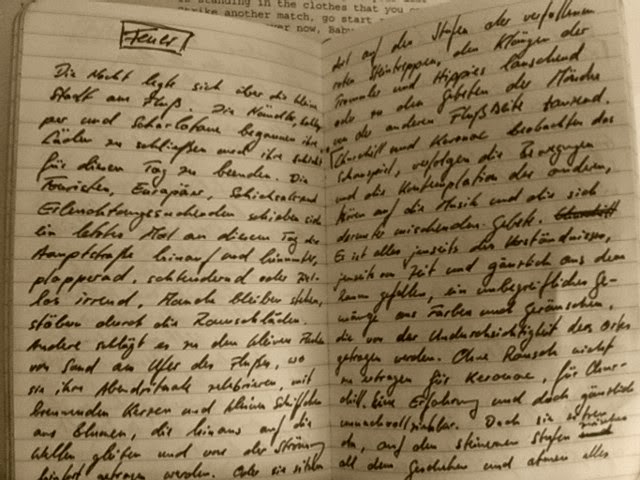 standing in the clothes that you
strike another match, go start
over now, Baby
Feuer
Die Nacht legte sich über die kleine
Stadt am Fluß. Die Händler,
und Scharlatane begannen ihre
Läden zu schließen und ihre
für diesen Tag zu beenden. Die
Touristen, Europäer, Schicksals und
Erleuchtungssuchenden schieben sich
ein letztes Mal an diesem Tag die
Hauptstraße hinauf und hinunter,
plappernd, schlendernd oder ziel-
los irrend. Manche bleiben stehen,
stöbern durch die Ramschläden.
Andere schlägt es zu den kleinen Fladen
von Sand am Ufer des Flußes, wo
sie ihre Abendrituale zelebrieren, mit
brennenden Kerzen und kleinen Schiffchen
aus Blumen, die hinaus auf die
Wellen gleiten und von der Strömung
getragen werden. Oder sie sitzen
dort auf den Stufen der verfallenen
roten Steintreppen, den Klängen der
Trommler und Hippies lauschend
oder so den Gebeten der Mönche
von der anderen Flußseite
Churchill und Kerouac beobachten das
Schauspiel, verfolgen die Bewegungen
und die Kontemplation der anderen,
hören auf die Musik und die sich
darunter mischenden Gebete.
Es ist alles jenseits des Verständnisses,
jenseits von Zeit und gänzlich aus dem
Raum gefallen, ein unbegreifliches Ge-
menge aus Farben und Geräuschen,
die von der Undurchsichtigkeit des Ortes
getragen werden. Ohne Rausch nicht
zu ertragen für Kerouac, für Chur-
chill eine Erfahrung und doch gänzlich
unnachvollziehbar. Doch sie sitzen
da, auf den steinernen Stufen
all dem Geschehen und atmen alles